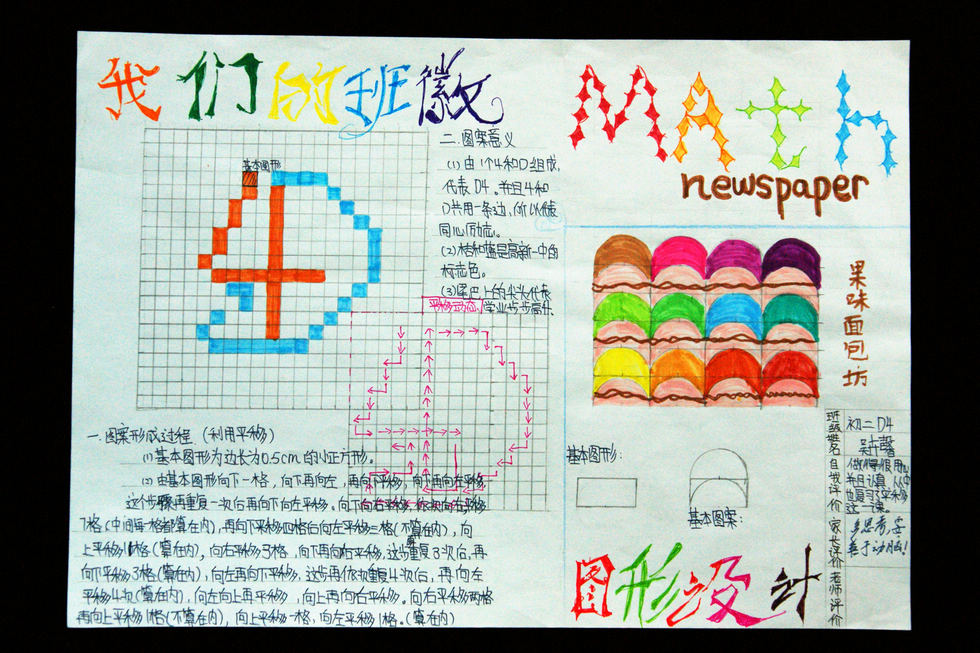 我们的班徽
基本图形
二.图案意义
(1)由1个4和D组成,
代表D4。并且4和
D共用一条边,所以代表
同心励志。
(2)桔和蓝是高新一中的
标志色。
(3)尾巴上的尖头代表
学业步步高升
平移动态
一.图案形成过程.(利用平移)
(1)基本图形为边长为0.5cm的小正方形。
(2)由基本图形向下一格,向下再向左,再向下平移,向下再向左平移,
这个步骤再重复一次后再向下向左平移。向下向右平移,依次向右平移
7格(中间每一格都算在内),再向下平移四格后向左平移三格(不算在内),向
上平移11格(算在内),向右平移3格,向下再向右平移,这步重复3次后,再
向下平移3格(算在内),向左再向下平移,这步再依次重复4次后,再向左
平移4次(算在内),向左向上再平移,向上再向右平移。向右平移两格
再向上平移1格(不算在内),向上平移一格,向左平移1格。(算在内)
MAth
newspaper
果味面包坊
基本图形:
基本图案:
图形设计
班级姓名
初二D4
自我评价
做得很用心
并且认真
也复习了平移
这一课。
家长评价
多思考,要
善于动脑!
老师评价